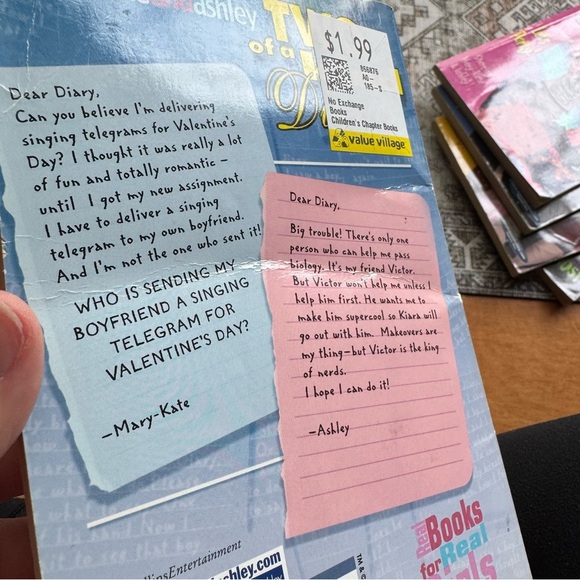 andashley
TWO
of a
$1.99
856876
A0-
185-S
No Exchange
Books
Children's Chapter Books
value village
Dear Diary,
Can you believe I'm delivering
singing telegrams for Valentine's
Day? I thought it was really a lot
of fun and totally romantic –
until I got my new assignment.
I have to deliver a singing
telegram to my own boyfriend.
And I'm not the one who sent it!
WHO IS SENDING MY
BOYFRIEND A SINGING
TELEGRAM FOR
VALENTINE'S DAY?
–Mary-Kate
Dear Diary,
Big trouble! There's only one
person who can help me pass
biology. It's my friend Victor.
But Victor won't help me unless I
help him first. He wants me to
make him supercool so Kiara will
go out with him. Makeovers are
my thing–but Victor is the king
of nerds.
I hope I can do it!
–Ashley
Entertainment
ashley.com
TM &
Real
Books
for Real